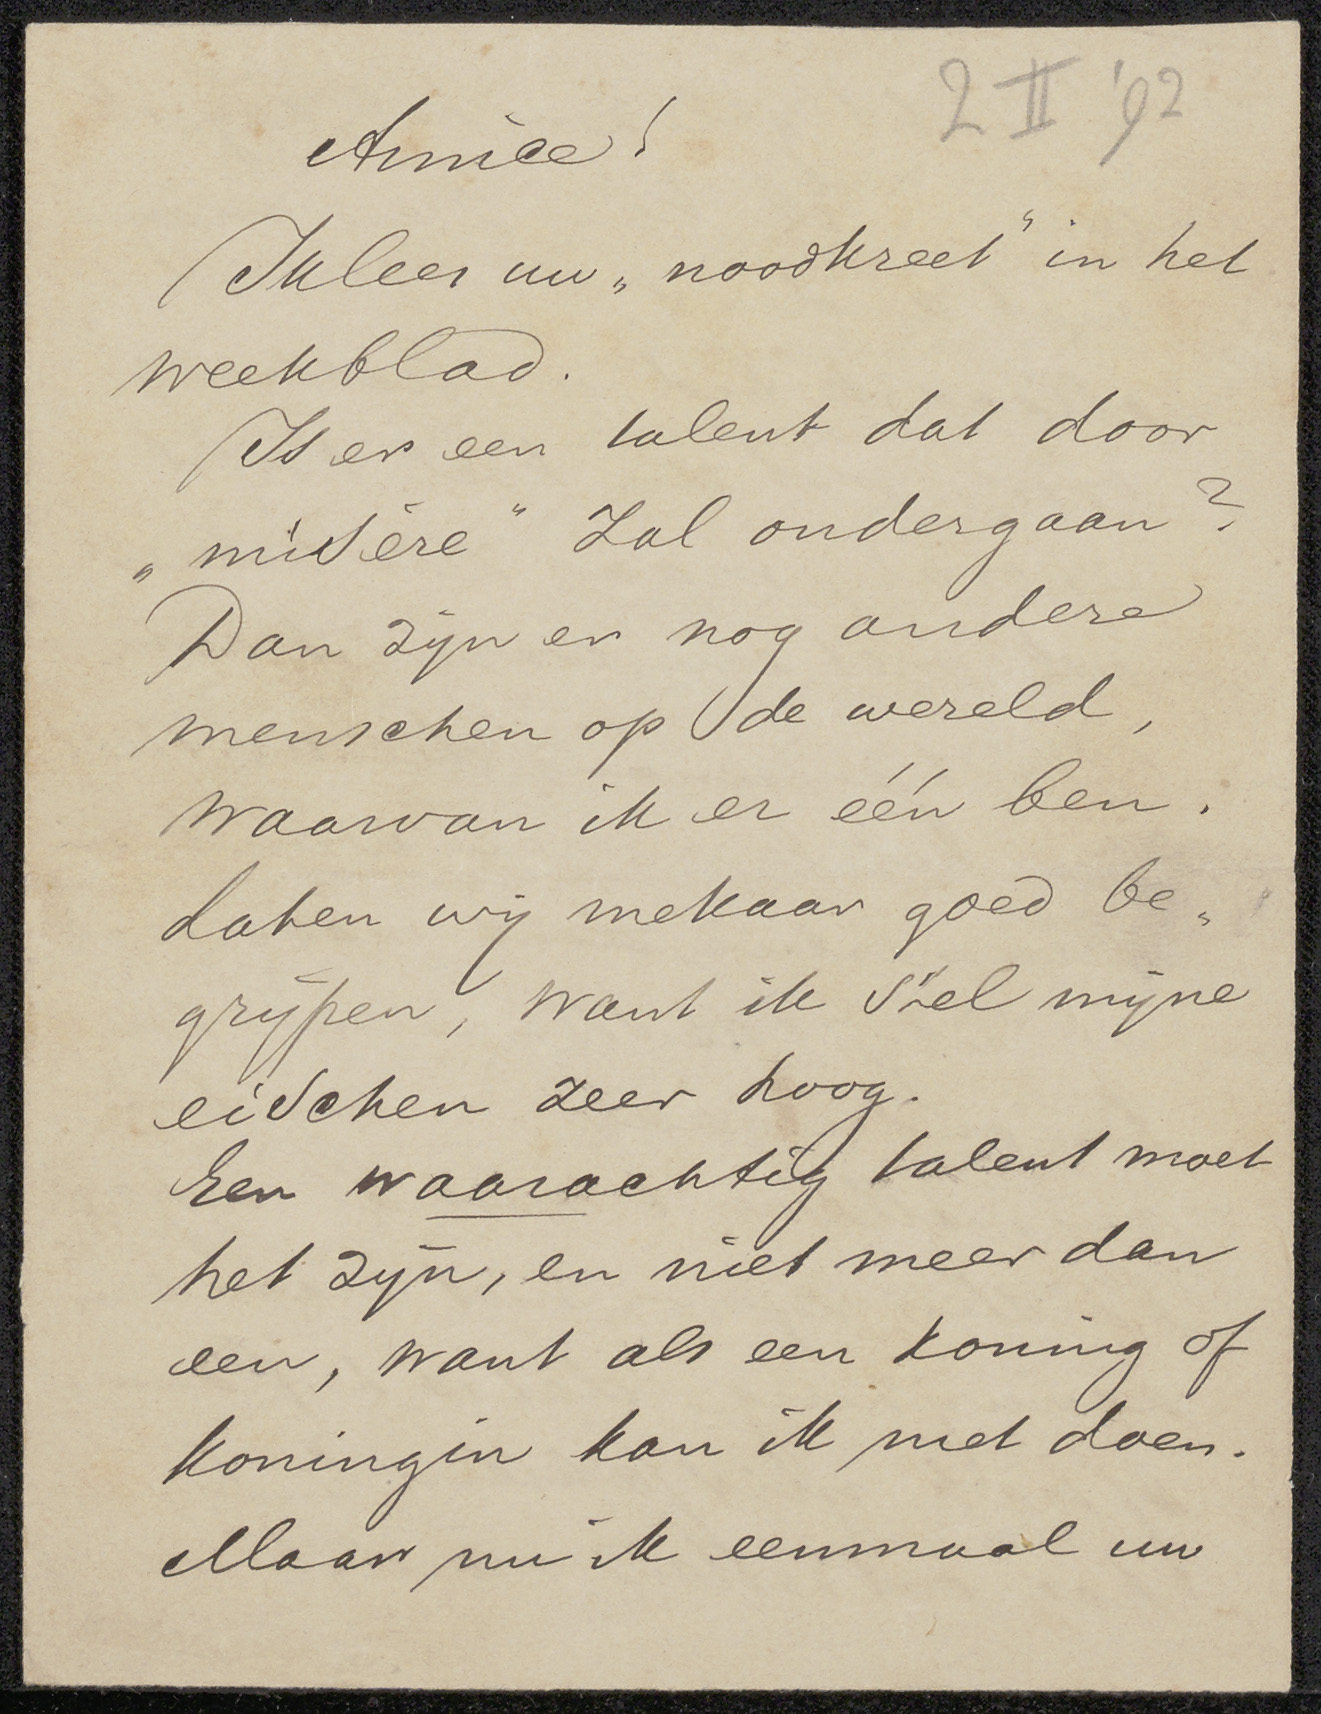 2 II '92
Amice!
Ik lees uw „noodkreet" in het
weekblad.
Is er een talent dat door
„misère" zal ondergaan?
Dan zijn er nog andere
menschen op de wereld,
waarvan ik er één ben.
Laten wij mekaar goed be„
grijpen, want ik stel mijne
eischen zeer hoog.
Een waarachtig talent moet
het zijn, en niet meer dan
een, want als een koning of
koningin kan ik niet doen.
Maar nu ik eenmaal uw